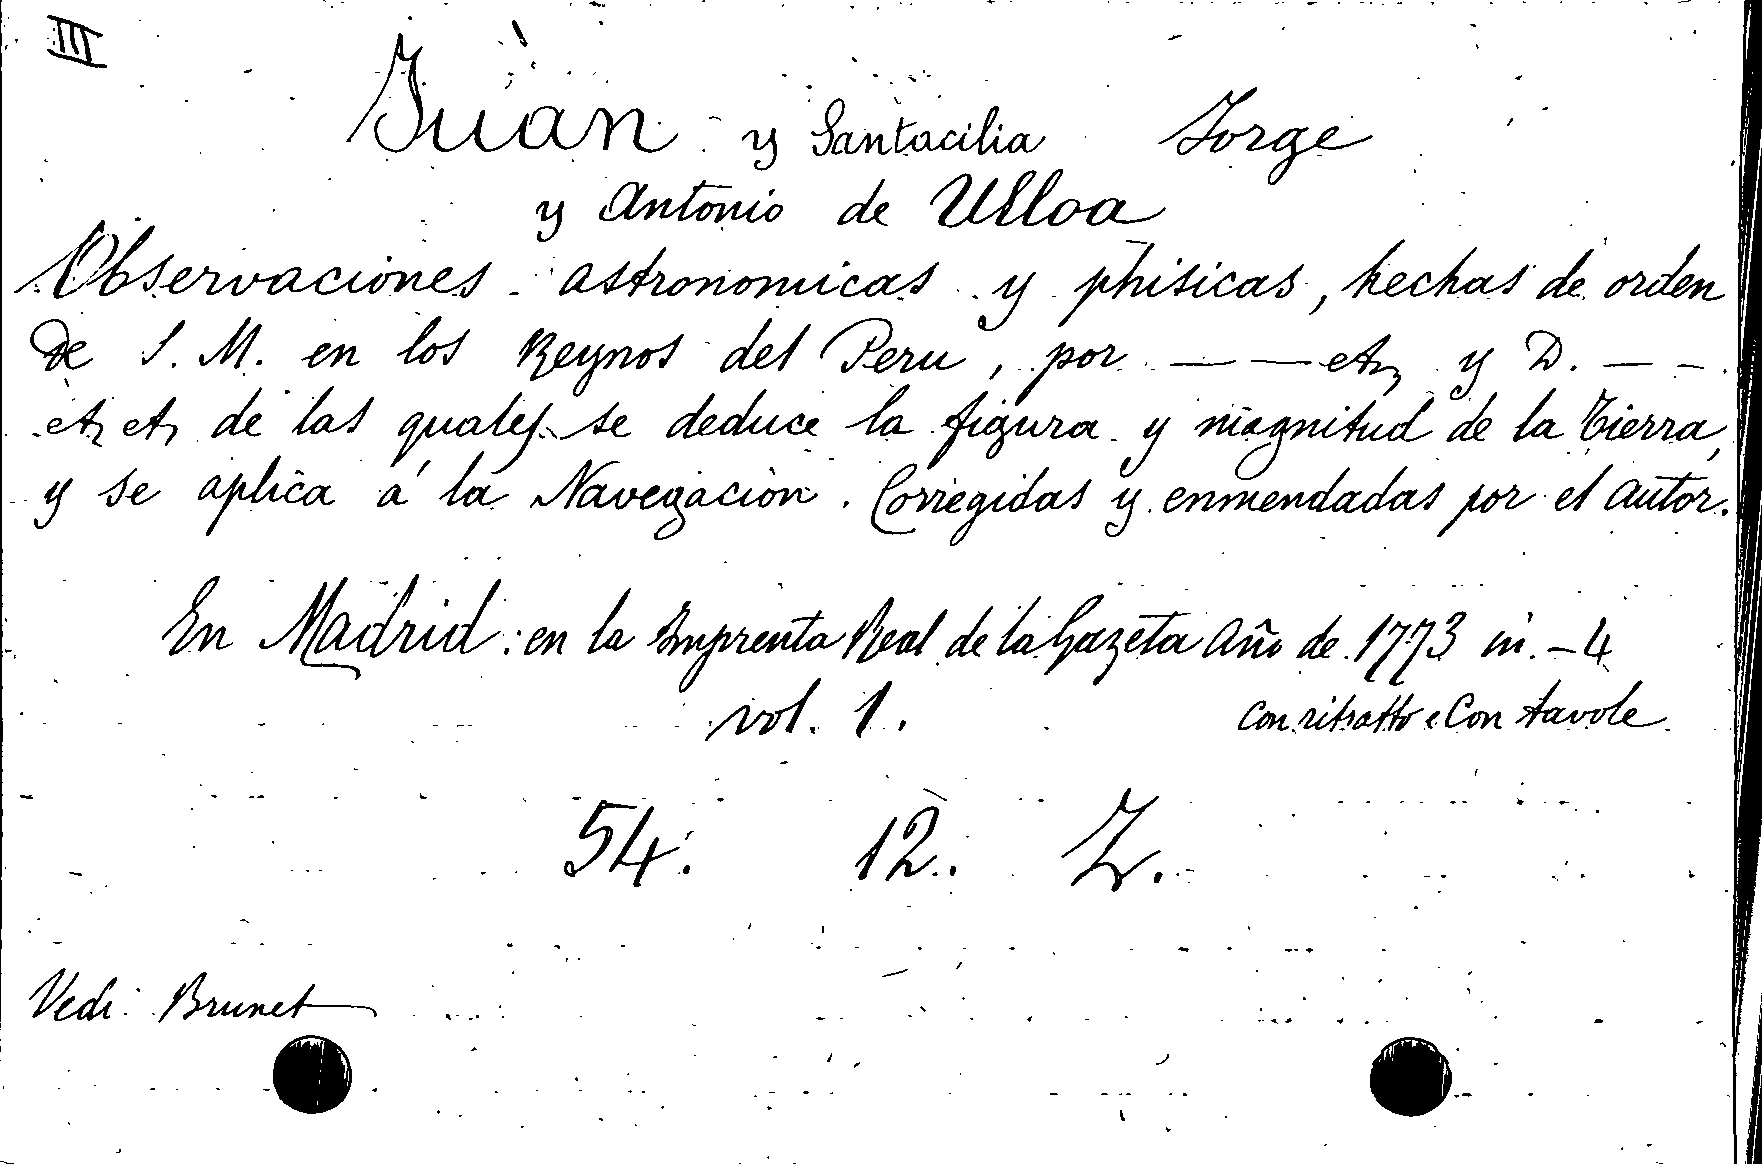 III
Juan y Santacilia Jorge
y Antonio de Ulloa
Observaciones astronomicas y phisicas, hechas de orden
De S. M. en los Reynos del Peru, por — — etz y D. — —
etz etz de las quales se deduce la figura y magnitud de la Tierra,
y se aplica á la Navegacion. Corregidas y enmendadas por el autor.
En Madrid: en la Imprenta Real de la Gazeta Año de 1773 in. - 4
vol. 1. con ritratto e con tavole
54. 12. Z.
Vedi: Brunet